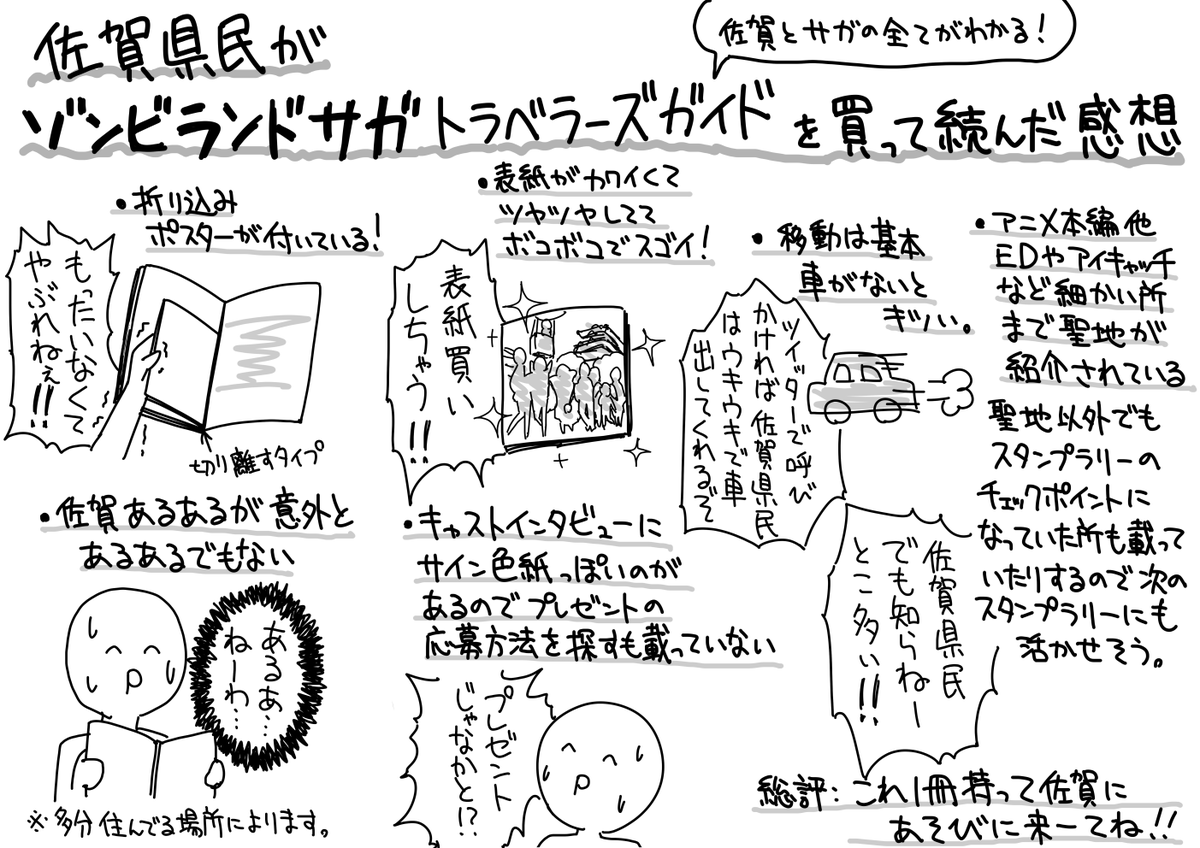 佐賀県民が
佐賀とサガの全てがわかる!
ゾンビランドサガトラベラーズガイドを買って続んだ感想
・折り込み
ポスターが付いている!
もったいなくて
やぶれねぇ!!
切り離すタイプ
・表紙がカワイくて
ツヤツヤしてて
ボコボコでスゴイ!
表紙買い
しちゃう!!
・移動は基本
車がないと
キツい。
ツイッターで呼び
かければ佐賀県民
はウキウキで車
出してくれるでて
・アニメ本編他
EDやアイキャッチ
など細かい所
まで聖地が
紹介されている
聖地以外でも
スタンプラリーの
チェックポイントに
なっていた所も載って
いたりするので次の
スタンプラリーにも
活かせそう。
佐賀県民
でも知らねー
とこ多い!!
・佐賀あるあるが意外と
あるあるでもない
あるあ…
ねーわ…
※多分住んでる場所によります。
・キャストインタビューに
サイン色紙っぽいのが
あるのでプレゼントの
応募方法を探すも載っていない
プレゼント
じゃなかと!?
総評:これ1冊持って佐賀に
あそびに来ーてね!!